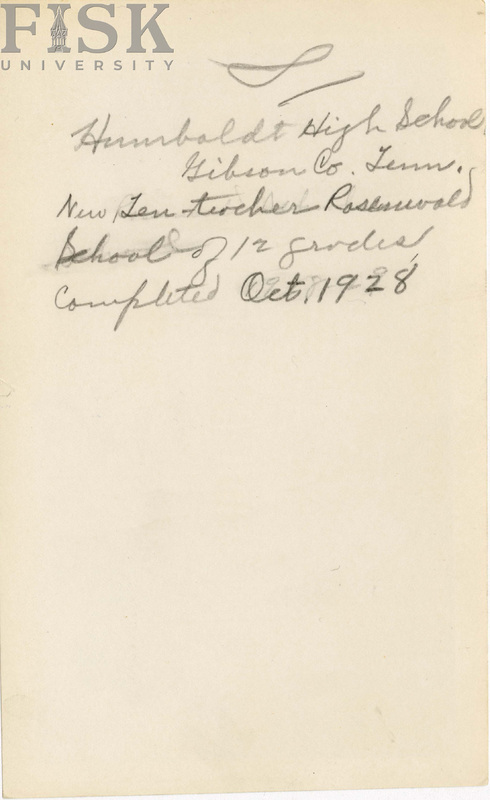 FISK
UNIVERSITY
Humboldt High School
Gibson Co. Tenn.
New Ten-teacher Rosenwald
School of 12 grades,
Completed Oct. 1928